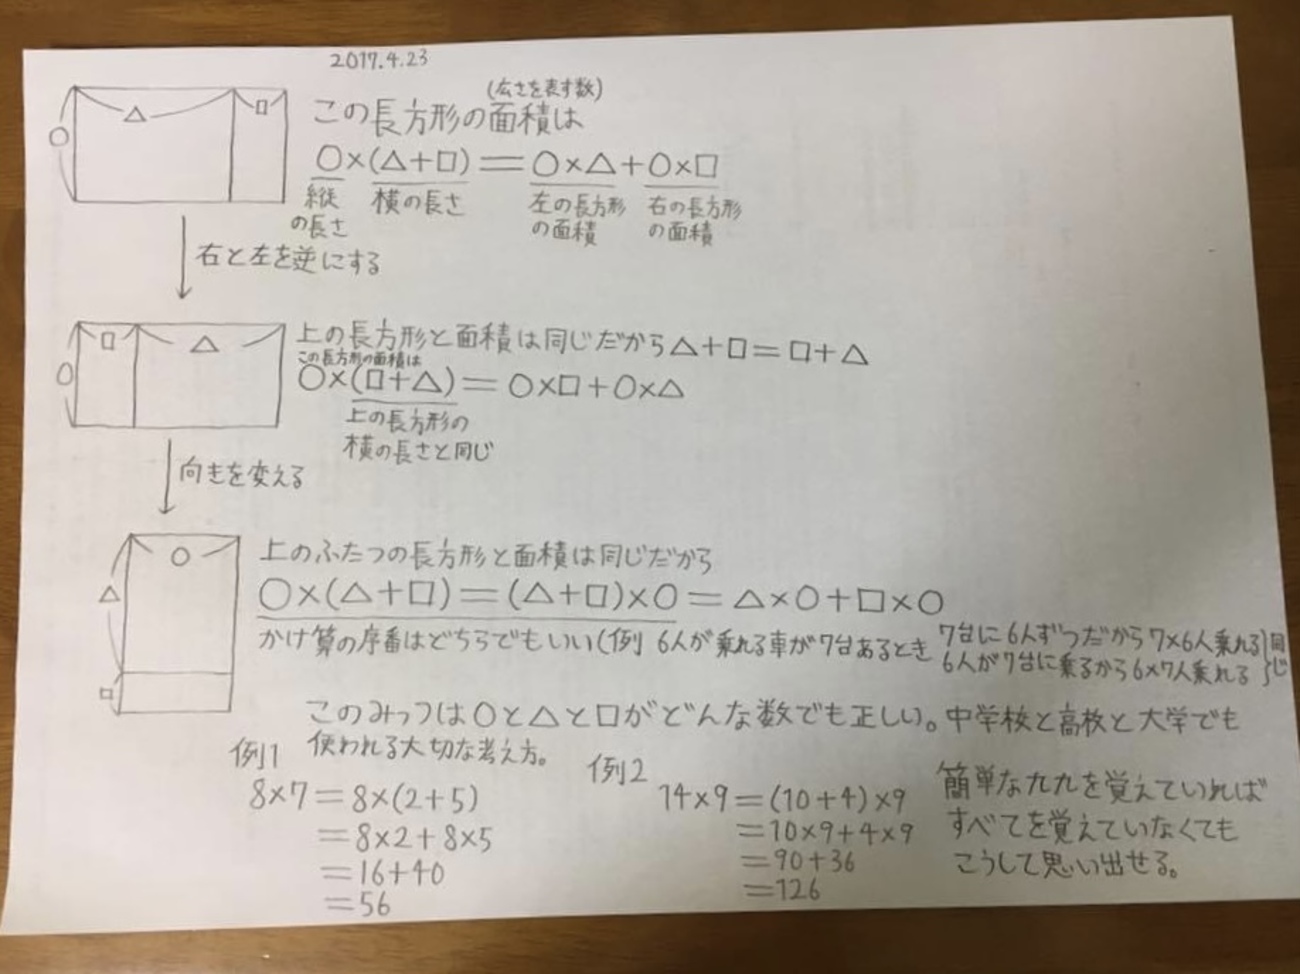 2017.4.23
(広さを表す数)
この長方形の面積は
○×(△+□)=○×△+○×□
縦の長さ 横の長さ 左の長方形の面積 右の長方形の面積
○ △ □
右と左を逆にする
上の長方形と面積は同じだから△+□=□+△
この長方形の面積は
○×(□+△)=○×□+○×△
○ □ △
上の長方形の
横の長さと同じ
向きを変える
○
△
□
上のふたつの長方形と面積は同じだから
○×(△+□)=(△+□)×○=△×○+□×○
かけ算の序番はどちらでもいい(例 6人が乗れる車が7台あるとき 7台に6人ずつだから7×6人乗れる
6人が7台に乗るから6×7人乗れる }同じ
このみっつは○と△と□がどんな数でも正しい。中学校と高校と大学でも
使われる大切な考え方。
例1
8×7=8×(2+5)
=8×2+8×5
=16+40
=56
例2
14×9=(10+4)×9
=10×9+4×9
=90+36
=126
簡単な九九を覚えていれば
すべてを覚えていなくても
こうして思い出せる。